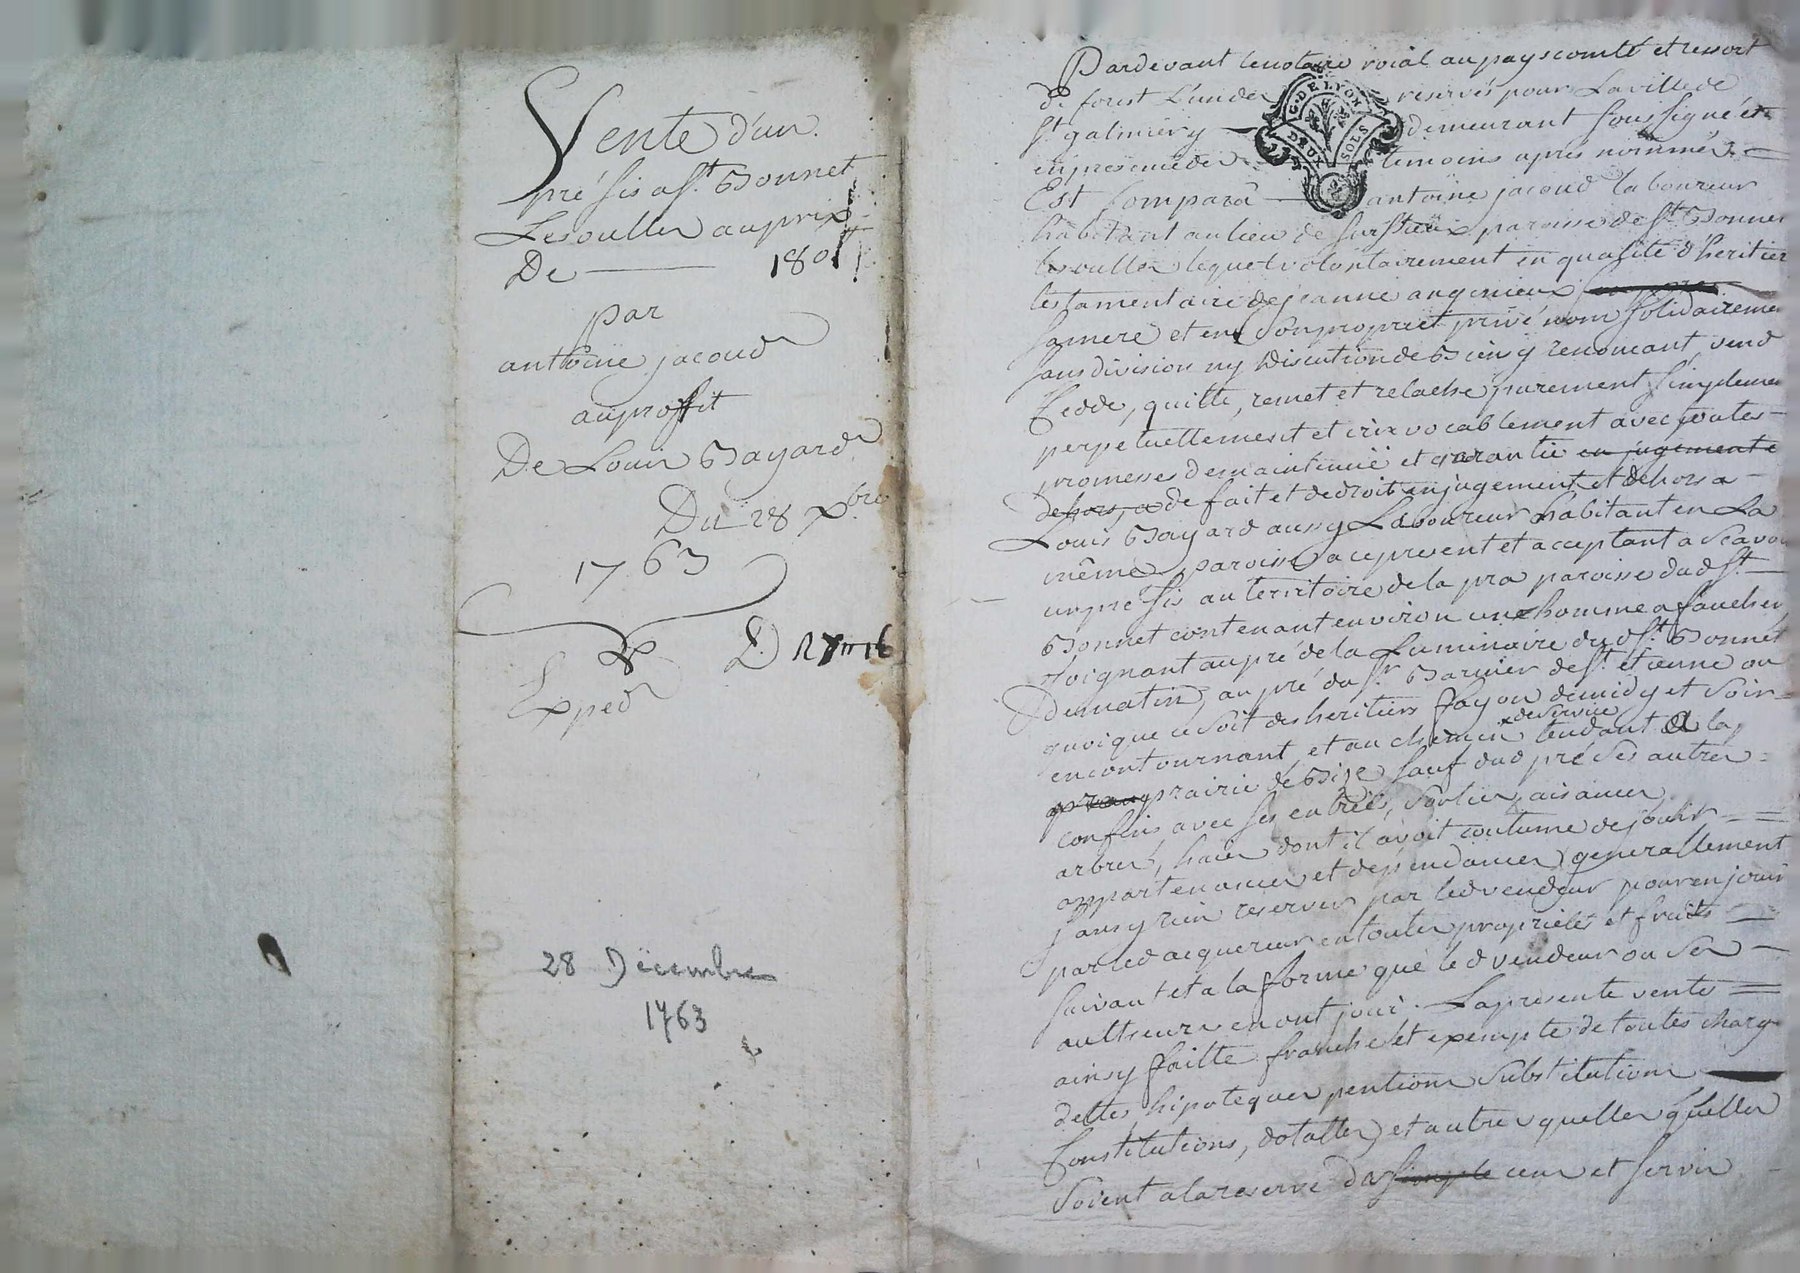 Vente d'un
pré sis a St. Bonnet
Lesoulles au prix
De 180ᵗᵗ
par
antoine jacoud
au proffit
De Louis Bayard
Du 28 xbre
1763
Exped
28 Décembre
1763
Pardevant le notaire roial au pays comté et ressort
de forest L'un des reservés pour La ville de
St galmier y demeurant soussigné et
en presence des temoins apres nommés
Est Comparu antoine jacoud laboureur
habitant au lieu de paroisse de St Bonnet
lesoulles lequel volontairement en qualité d'heritier
testamentaire de jeanne angenieux
sa mere et en son propre et privé nom solidaireme
sans division ny discution de Biens y renoncant, vend
Cedde, quitte, remet et relache purement simpleme
perpetuellement et irrevocablement avec toutes
promesses de maintenüe et garantie en jugement e
dehors, a de fait et de droit en jugement et dehors a
Louis Bayard aussy Laboureur habitant en La
même paroisse a ce present et acceptant a Scavoi
un pré sis au territoire de la pra paroisse dud St
Bonnet contenant environ une homme a faucher
joignant au pré de la Luminaire dud St. Bonnet
De matin, au pré du Sr Barnier de St etienne ou
quoique ce soit des heritiers fayon de midy et soir
en contournant, et au chemin de servue tendant a la
prairie de Bize sauf dud pré Ses autres
confins avec ses entrées, sorties, aisances
arbres, haies dont il avoit coutume de jouir
appartenances et dépendances generallement
sans y rien reserver par led vendeur pour en jouir
par led acquereur en toutes proprietés et fruits
suivant et a la forme que led vendeur ou Ses
autheurs en ont joui. La presente vente
ainsy faitte franche et exempte de toutes charge
dettes, hipoteques pentions Substitutions
Constitutions, dotalles, et autres quelles quelles
Soient a la reserve Du simple cens et servis
C. DE LYON
DEUX SOLS